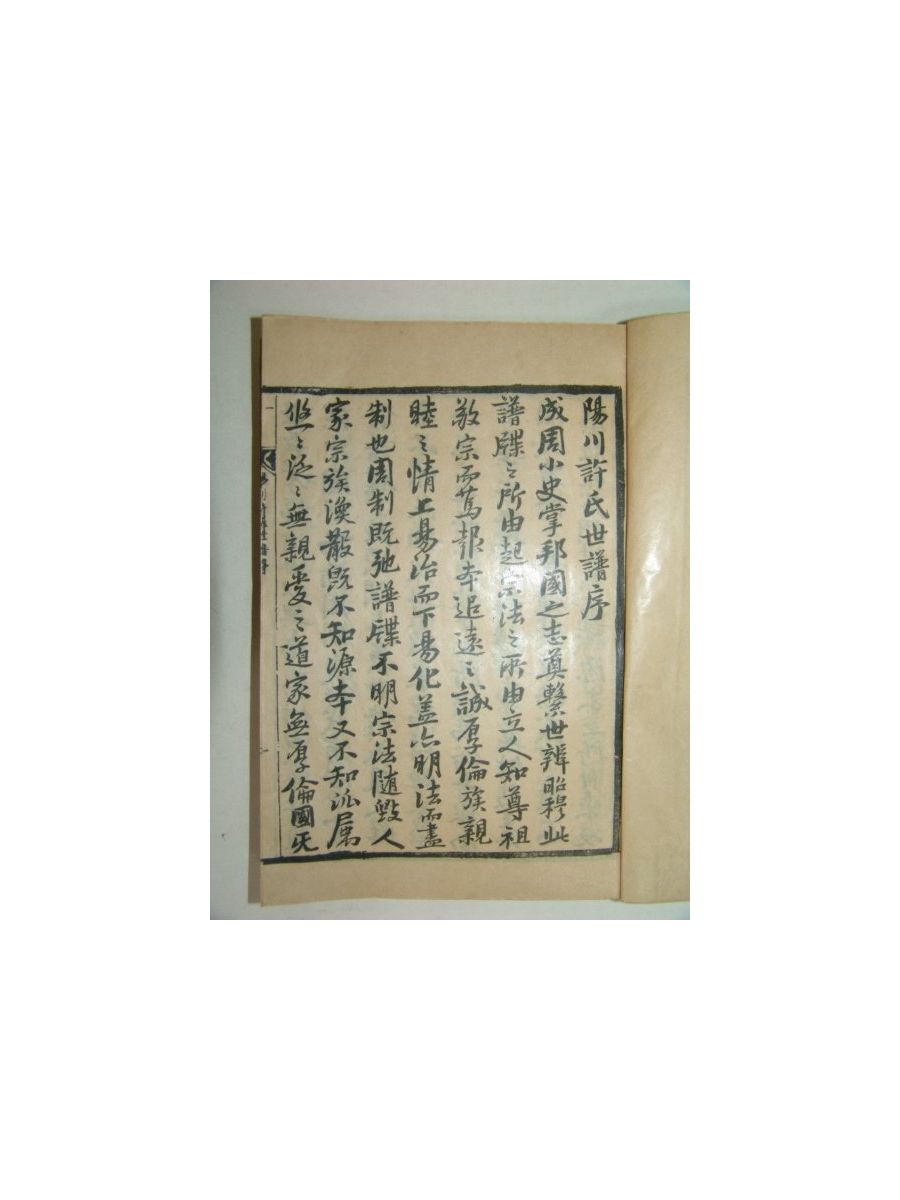 陽川許氏世譜序
成周小史掌邦國之志奠繫世辨昭穆此
譜牒之所由起宗法之所由立人知尊祖
敬宗而篤報本追遠之誠厚倫族親
睦之情上易治而下易化盖亦明法而盡
制也周制既弛譜牒不明宗法随毀人
家宗族渙散旣不知源本又不知派属
悠〻泛〻無親愛之道家無厚倫國无